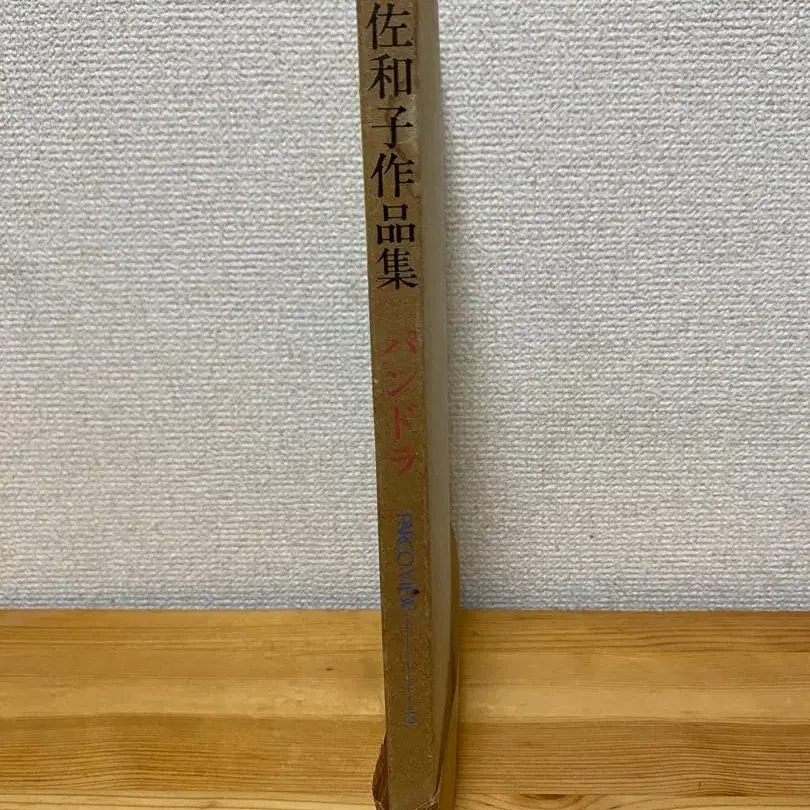 佐和子作品集
パンドラ
PARCO VIEW